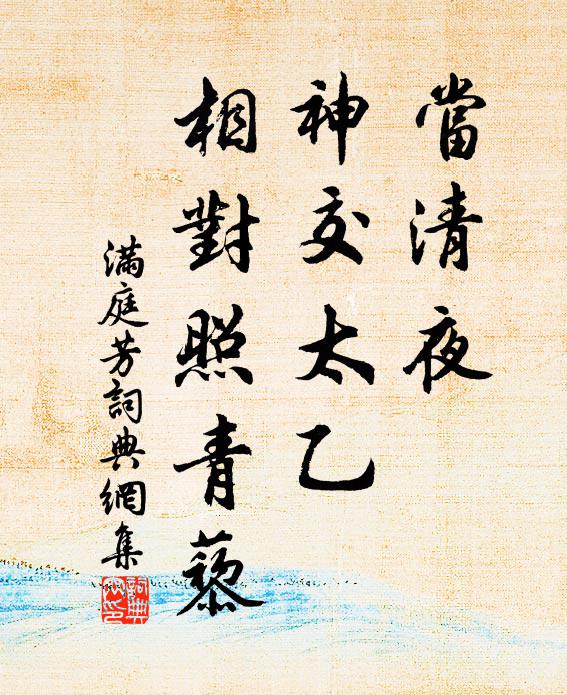 當清夜
神交太乙
相對照青藜
滿庭芳詞典網集